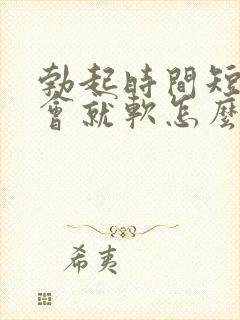 勃起時間短
會就軟怎麼
希夷